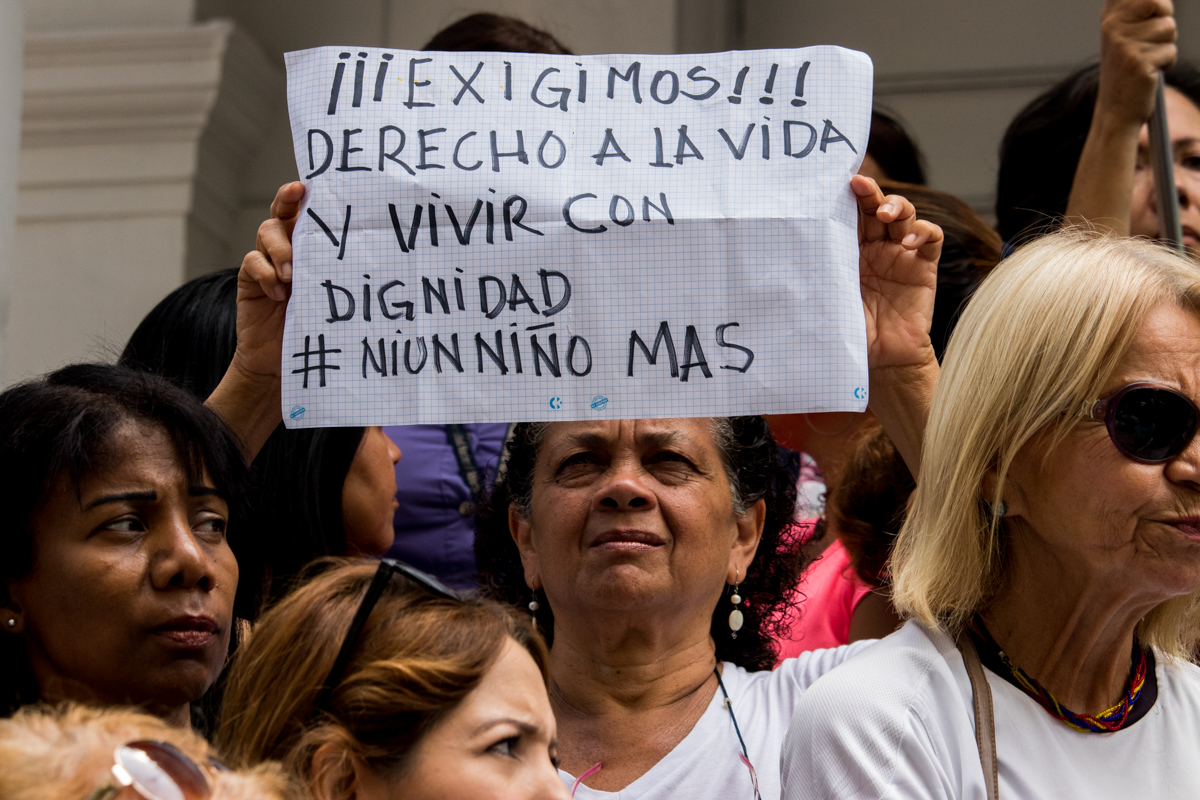 ¡¡¡EXIGIMOS!!!
DERECHO A LA VIDA
Y VIVIR CON
DIGNIDAD
#NIUNNIÑO MAS